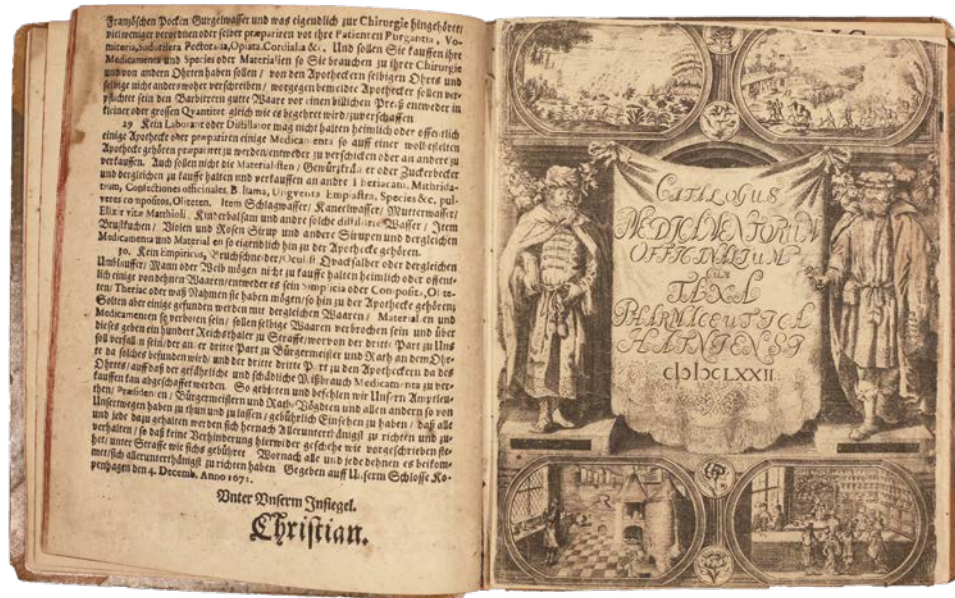 Frantzöschen Pocken Gurgelwasser und was eigendlich zur Chirurgie hingehöret;
viel weniger verordnen oder selber præpariren vor ihre Patienten Purgantia, Vo-
mitoria, Sudorifera Pectoralia, Opiata, Cordialia &c. Und sollen Sie kauffen ihre
Medicamenta und Species oder Materialien so Sie brauchen zu ihrer Chirurgie
und von andern Ohrten haben sollen / von den Apotheckern selbigen Ohrts und
selbige nicht anderswoher verschreiben / worgegen bemeldte Apothecker sollen ver-
pflichtet sein den Barbirern gutte Waare vor einen billichen Preiß entweder in
kleiner oder grossen Qvantitet gleich wie es begehret wird / zuverschaffen
29 Kein Laborant oder Distillator mag nicht halten heimlich oder offentlich
einige Apothecke oder præpariren einige Medicamenta so auff einer wollbestelten
Apothecke gehören præpariret zu werden / entweder zu verschicken oder an andere zu
verkauffen. Auch sollen nicht die Materialisten / Gewürtzkrämer oder Zuckerbecker
und dergleichen zu kauffe halten und verkauffen an andre Theriacam, Mathrida-
tium, Confectiones officinales, Balsama, Ungventa Emplastra, Species &c. pul-
veres compositos, Oliteten. Item Schlagwasser / Kaneelwasser / Mutterwasser /
Elixir vitæ Matthioli, Kinderbalsam und andre solche distilirte Wasser / Item
Brustkuchen / Violen und Rosen Sirup und andere Sirupen und dergleichen
Medicamenta und Materialien so eigendlich hin zu der Apothecke gehören.
30. Kein Empiricus, Bruchschneider / Oculist Qvacksalber oder dergleichen
Umblauffer / Mann oder Weib mögen nicht zu kauffe halten heimlich oder offent-
lich einige von dehnen Waaren / entweder es sein Simplicia oder Composita, Olite-
ten / Theriac oder waß Nahmen sie haben mögen / so hin zu der Apothecke gehören;
Solten aber einige gefunden werden mit dergleichen Waaren / Materialien und
Medicamenten so verboten sein / sollen selbige Waaren verbrochen sein und über
dieses geben ein hundert Reichsthaler zu Straffe / worvon der dritte Part zu Uns
soll verfallen sein / der andre dritte Part zu Bürgermeister und Rath an dem Ohr-
te da solches befunden wird / und der dritte dritte Part zu den Apotheckern da des
Ohrtes / auff daß der gefährliche und schädliche Mißbrauch Medicamenta zu ver-
kauffen kan abgeschaffet werden. So gebieten und befehlen wir Unsern Amptleu-
then / Præsidenten / Bürgermeistern und Rath / Vögdten und allen andern so von
Unsertwegen haben zu thun und zu lassen / gebührlich Einsehen zu haben / daß alle
und jede dazu gehalten werden sich hernach Allerunterthänigst zu richten und zu-
verhalten / so daß keine Verhinderung hierwider geschehe wie vorgeschrieben ste-
het / unter Straffe wie sichs gebühret. Wornach alle und jede dehnen es beikom-
met / sich allerunterthänigst zu richten haben. Gegeben auff Unserm Schlosse Ko-
penhagen den 4. Decemb. Anno 1671.
Unter Unserm Insiegel.
Christian.
CATALOGUS
MEDICAMENTORUM
OFFICINALIUM
CUM
TAXA
PHARMACEUTICA
HAFNIENSI
cIↃIↃcLXXII